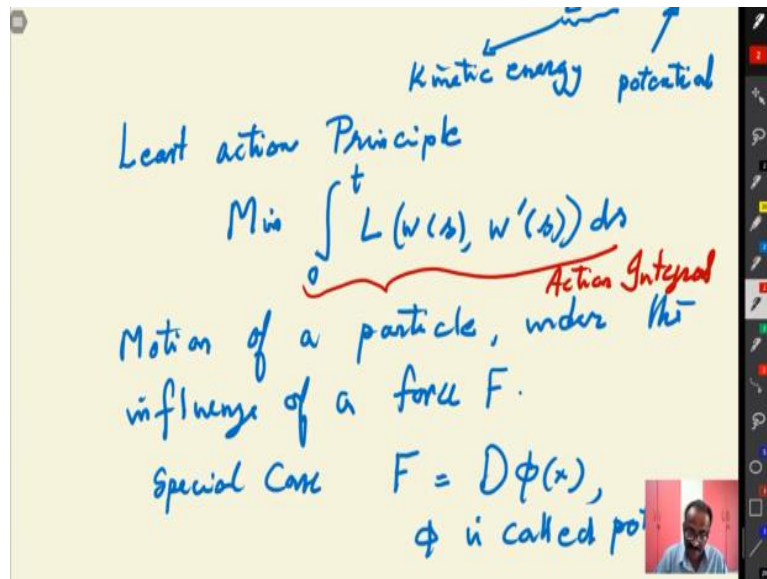 Kinetic energy potential
Least action Principle
Min ∫₀ᵗ L(w(s), w'(s)) ds
Action Integral
Motion of a particle, under the
influence of a force F.
Special Case F = Dϕ(x),
ϕ is called pot